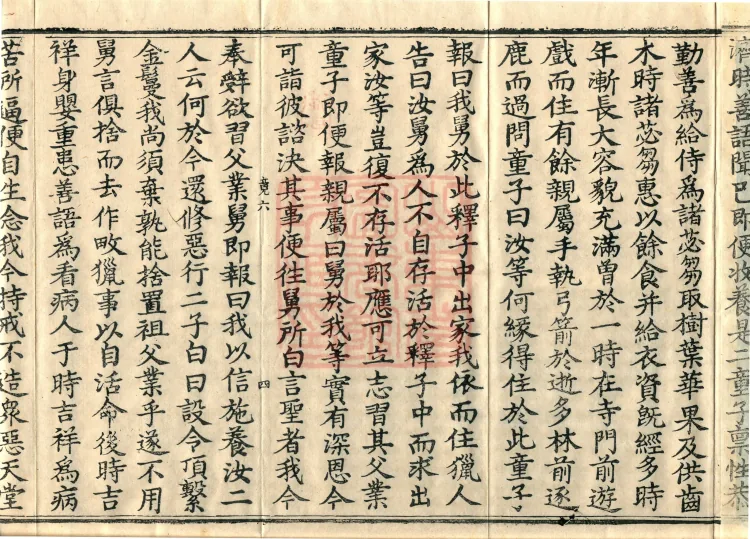 濟時善語聞已即便收養是二童子稟性恭
勤善為給侍為諸苾芻取樹葉華果及供齒
木時諸苾芻惠以餘食并給衣資既經多時
年漸長大容貌充滿曾於一時在寺門前遊
戲而住有餘親屬手執弓箭於逝多林前逐
鹿而過問童子曰汝等何緣得住於此童子
報曰我舅於此釋子中出家我依而住獵人
告曰汝舅為人不自存活於釋子中而求出
家汝等豈復不存活耶應可立志習其父業
童子即便報親屬曰舅於我等實有深恩今
可詣彼諮決其事便往舅所白言聖者我今
竟六
四
奉辝欲習父業舅即報曰我以信施養汝二
人云何於今還修惡行二子白曰設令頂繫
金鬘我尚須棄孰能捨置祖父業乎遂不用
舅言俱捨而去作畋獵事以自活命後時吉
祥身嬰重患善語為看病人于時吉祥為病
苦所逼便自生念我今持戒不造眾惡天堂